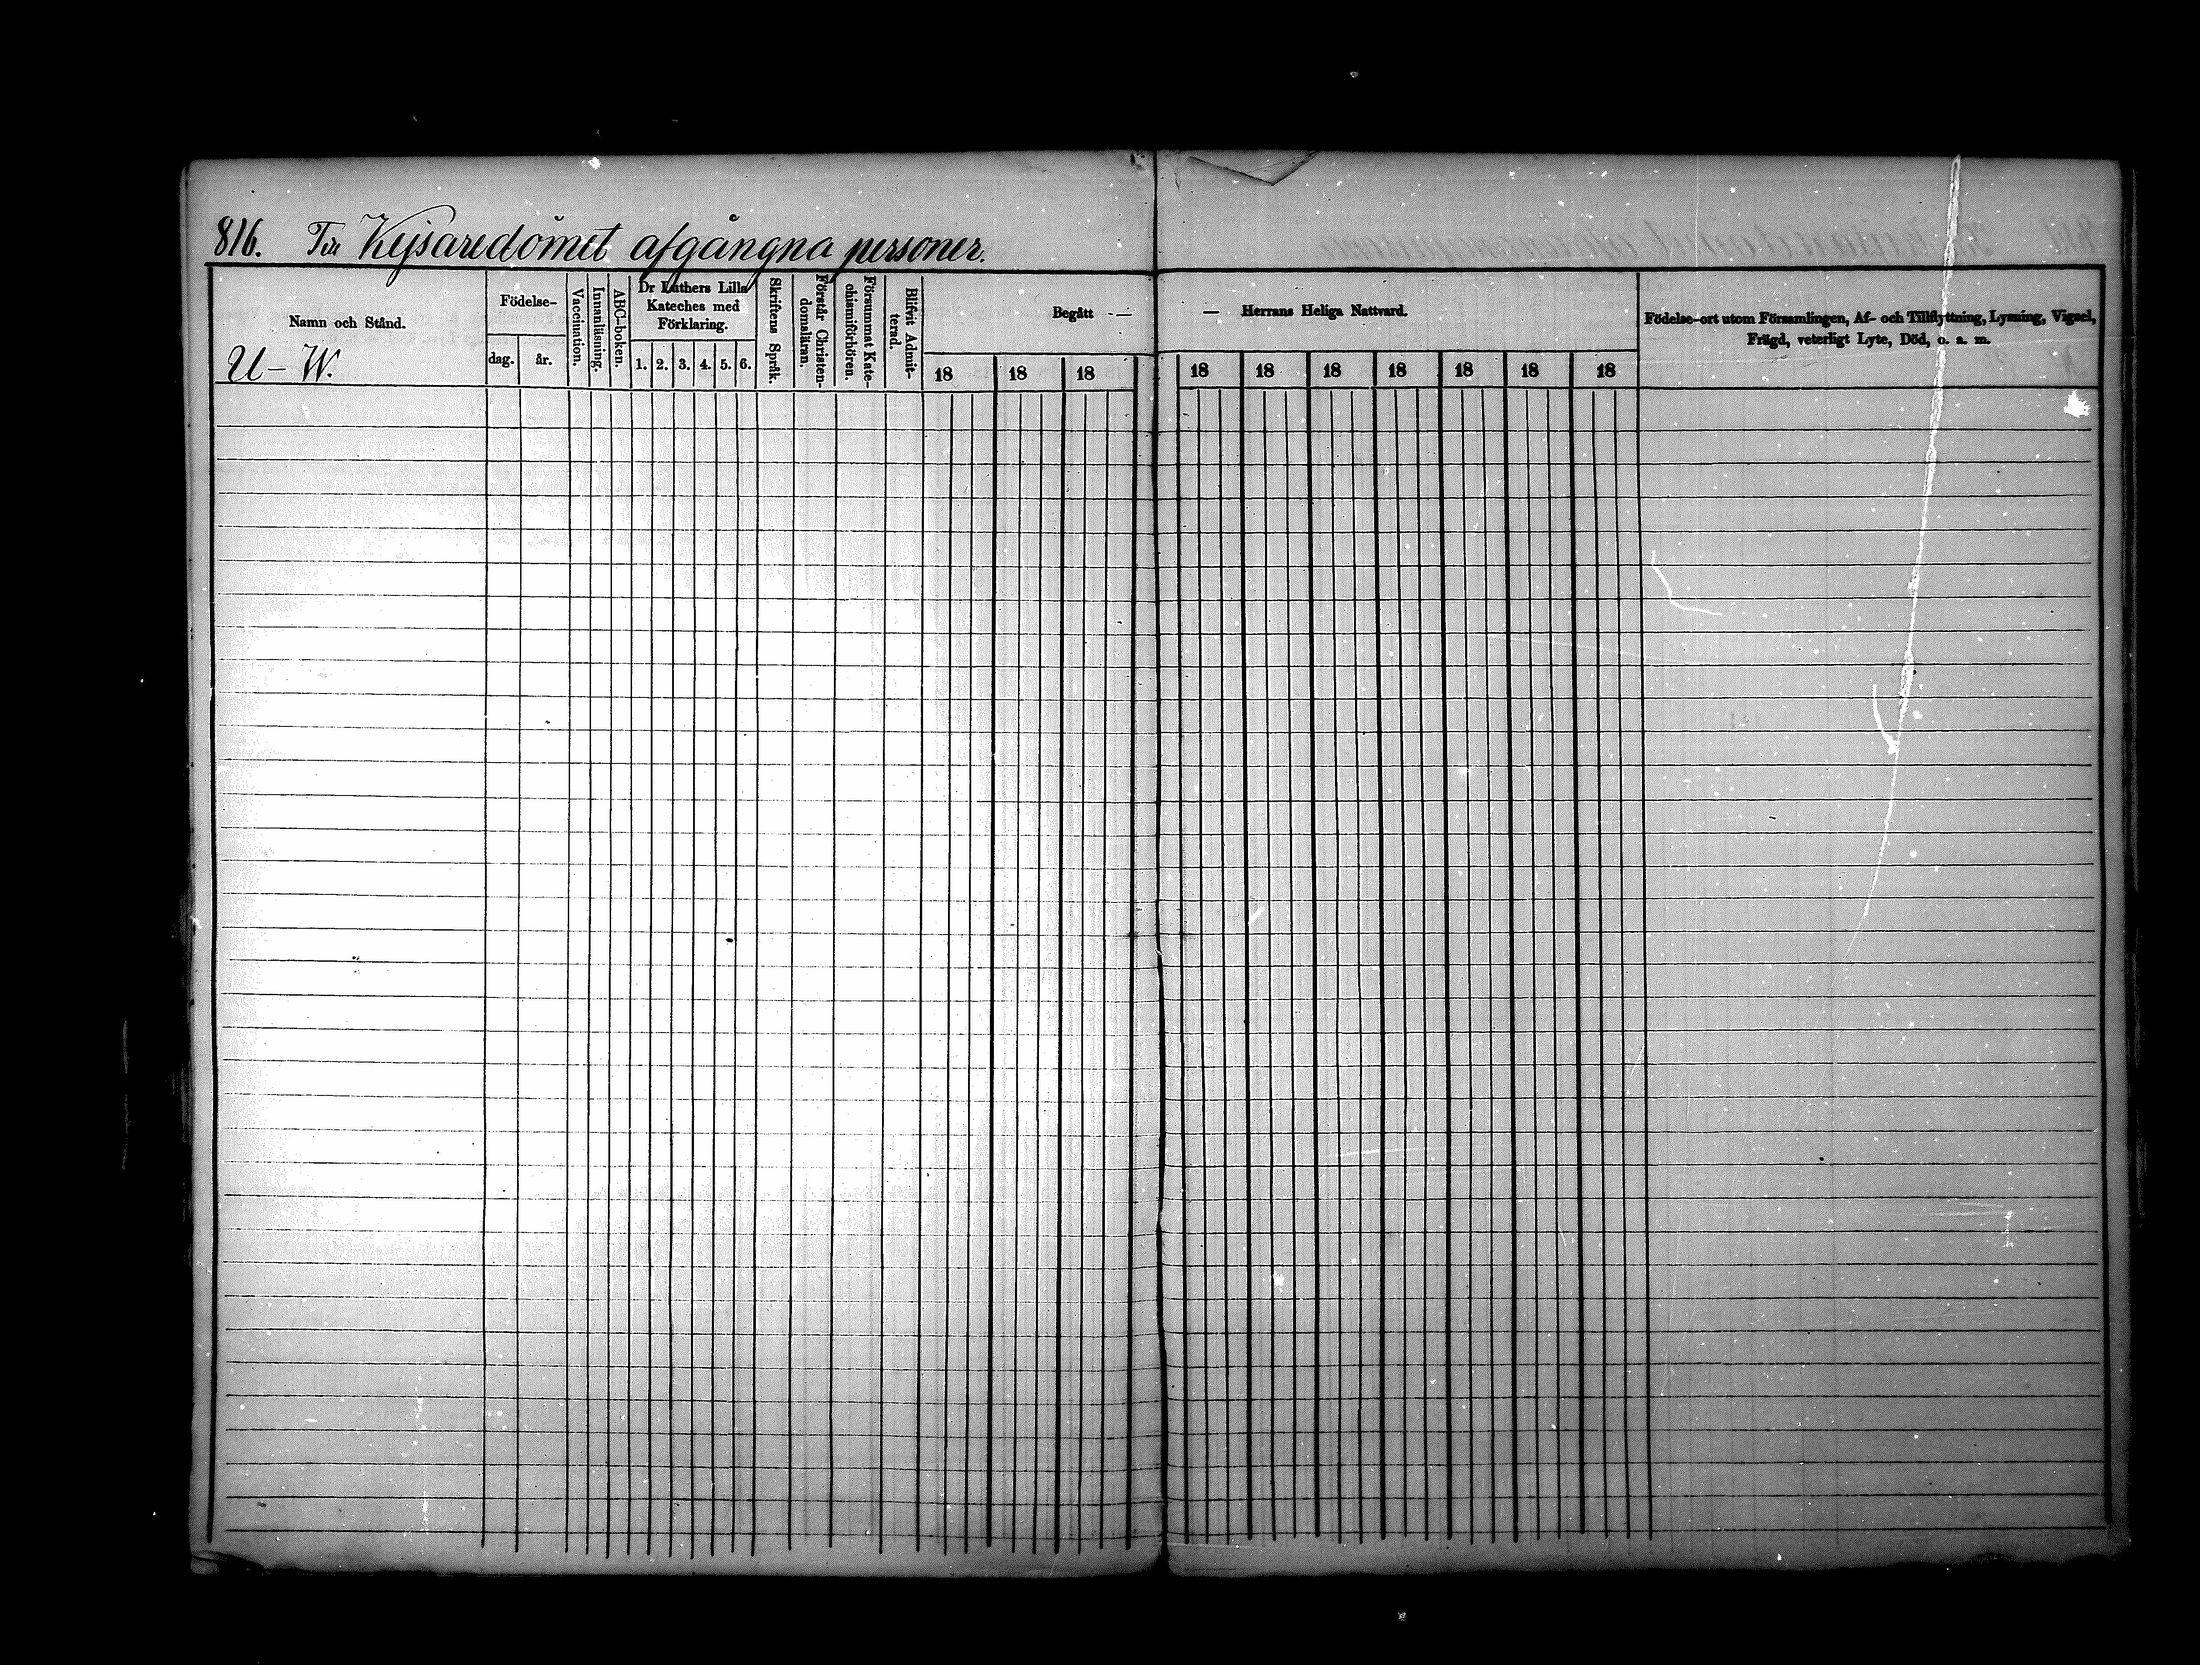 816. Till Kejsaredömet afgångna personer.
Namn och Stånd.
U – W.
Födelse-
dag. år.
Vaccination.
Innanläsning.
ABC-boken.
Dr Luthers Lilla
Kateches med
Förklaring.
1. 2. 3. 4. 5. 6.
Skriftens Språk.
Förstår Christen-
domsläran.
Försummat Kate-
chismiförhören.
Blifvit Admit-
terad.
Begått — — Herrans Heliga Nattvard.
18 18 18 18 18 18 18 18 18 18
Födelse-ort utom Församlingen, Af- och Tillflyttning, Lysning, Vigsel,
Frägd, veterligt Lyte, Död, o. s. m.